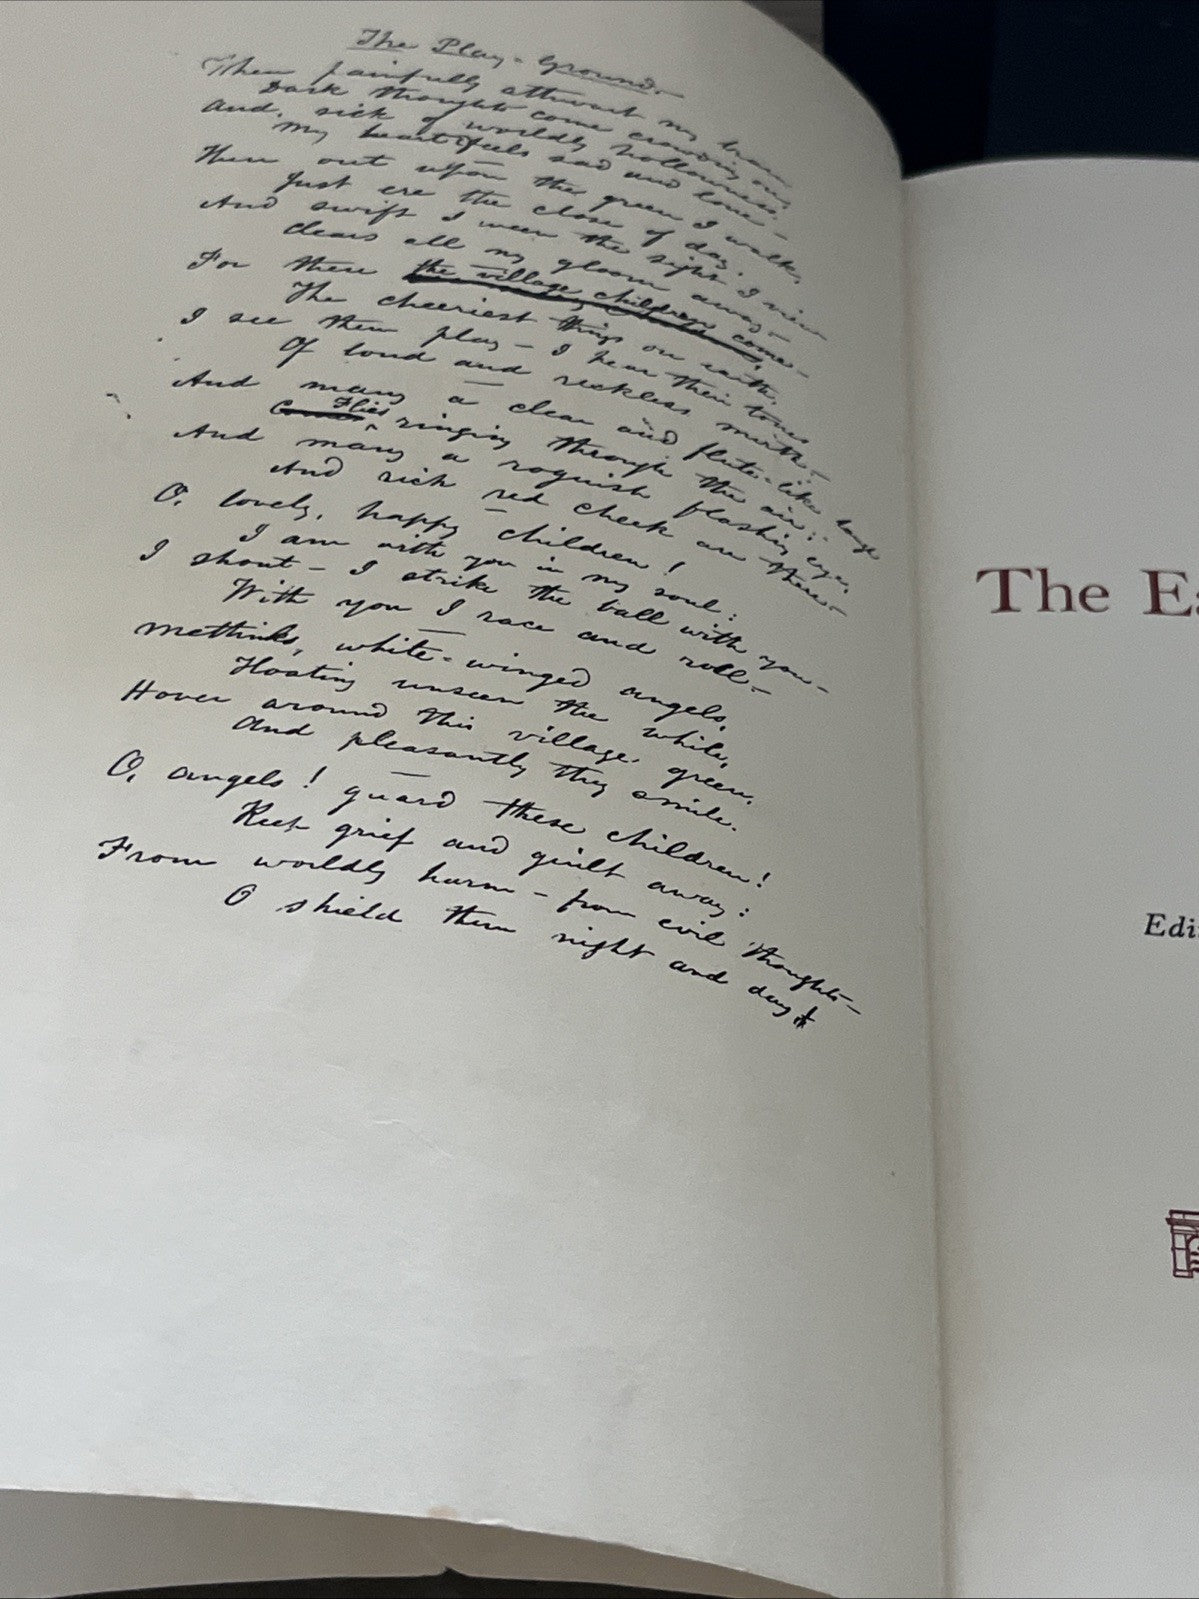 The Play-Ground.
When painfully athwart my brain
Dark thoughts come crowding on,
And, sick of worldly hollowness,
My heart feels sad and lone—
Then out upon the green I walk,
Just ere the close of day,
And swift I ween the sight I view
Clears all my gloom away.
For there the village children come—
The cheeriest things on earth,
I see them play — I hear their tones
Of loud and reckless mirth.
And many a clear and flute-like laugh
Flies ringing through the air;
And many a roguish flashing eye,
And rich red cheek are there.
O, lovely, happy children!
I am with you in my soul:
I shout — I strike the ball with you—
With you I race and roll—
Methinks, white-winged angels,
Floating unseen the while,
Hover around this village green,
And pleasantly they smile.
O, angels! guard these children!
Keep grief and guilt away:
From worldly harm — from evil thoughts—
O shield them night and day!
The
Edi